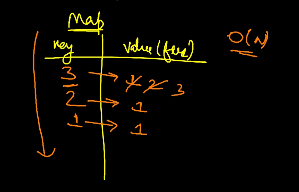 Map
key value(freq) O(N)
3 → 1 2 3
2 → 1
1 → 1